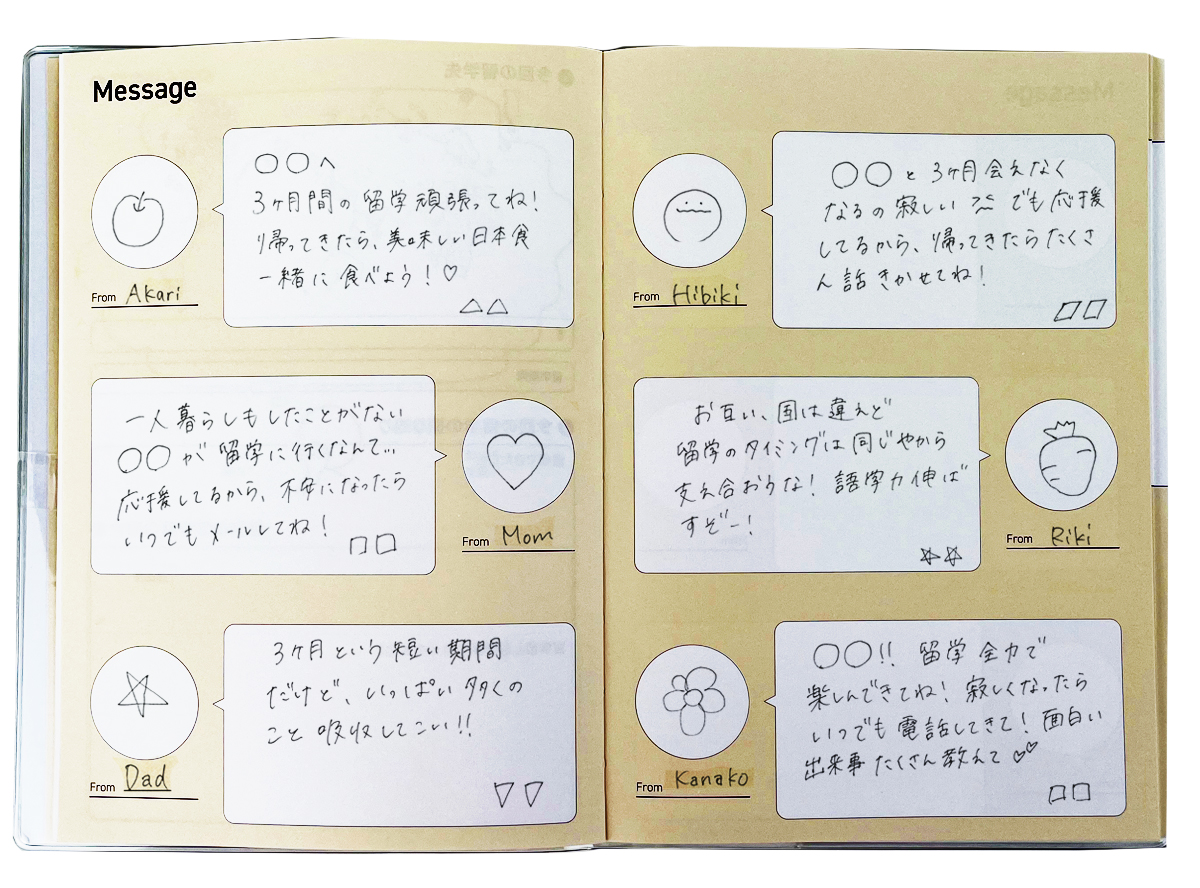 Message
○○へ
3ヶ月間の留学頑張ってね!
帰ってきたら、美味しい日本食
一緒に食べよう!♡
△△
From Akari
一人暮らしもしたことがない
○○が留学に行くなんて…
応援してるから、不安になったら
いつでもメールしてね!
□□
From Mom
3ヶ月という短い期間
だけど、いっぱい多くの
こと吸収してこい!!
▽▽
From Dad
○○と3ヶ月会えなく
なるの寂しい でも応援
してるから、帰ってきたらたくさ
ん話きかせてね!
□□
From Hibiki
お互い、国は違えど
留学のタイミングは同じやから
支え合おうな!語学力伸ば
すぞー!
☆☆
From Riki
○○!!留学全力で
楽しんできてね!寂しくなったら
いつでも電話してきて!面白い
出来事たくさん教えて♡♡
□□
From Kanako